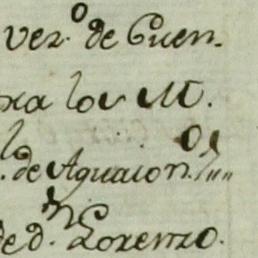 vez.º de Cuen.
xa los M.
l. de Aguaion.
de d.ⁿ Lorenzo.